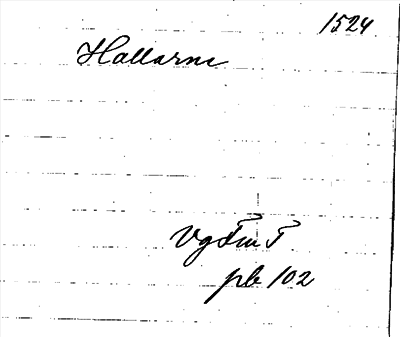 1524
Hallarne
VgFmT
pb 102